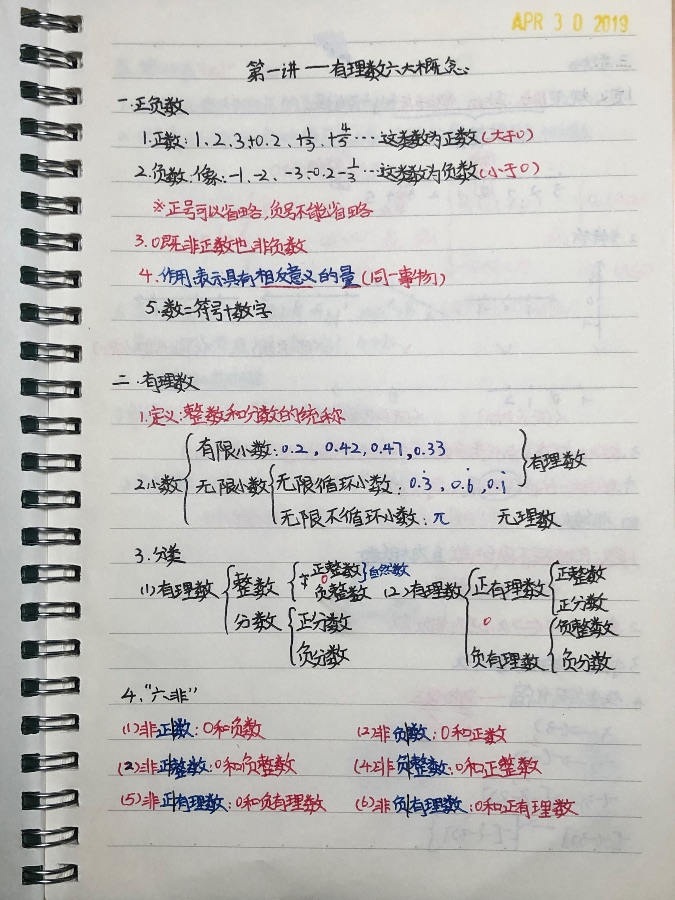 APR 30 2019
第一讲——有理数六大概念
一.正负数
1.正数:1、2、3、+0.2、+1/3、+4/5…这类数为正数(大于0)
2.负数.像:-1、-2、-3、-0.2-1/3…这类数为负数(小于0)
※正号可以省略,负号不能省略
3.0既非正数也非负数
4.作用:表示具有相反意义的量(同一事物)
5.数=符号+数字
二.有理数
1.定义:整数和分数的统称
有限小数:0.2,0.42,0.47,0.33
有理数
2小数 无限小数 无限循环小数:0.3̇,0.6̇,0.1̇
无限不循环小数:π 无理数
3.分类
(1)有理数 整数 正整数 0 负整数 自然数
分数 正分数
负分数
(2)有理数 正有理数 正整数
正分数
0
负有理数 负整数
负分数
4."六非"
(1)非正数:0和负数 (2)非负数:0和正数
(2)非正整数:0和负整数 (4)非负整数:0和正整数
(5)非正有理数:0和负有理数 (6)非负有理数:0和正有理数